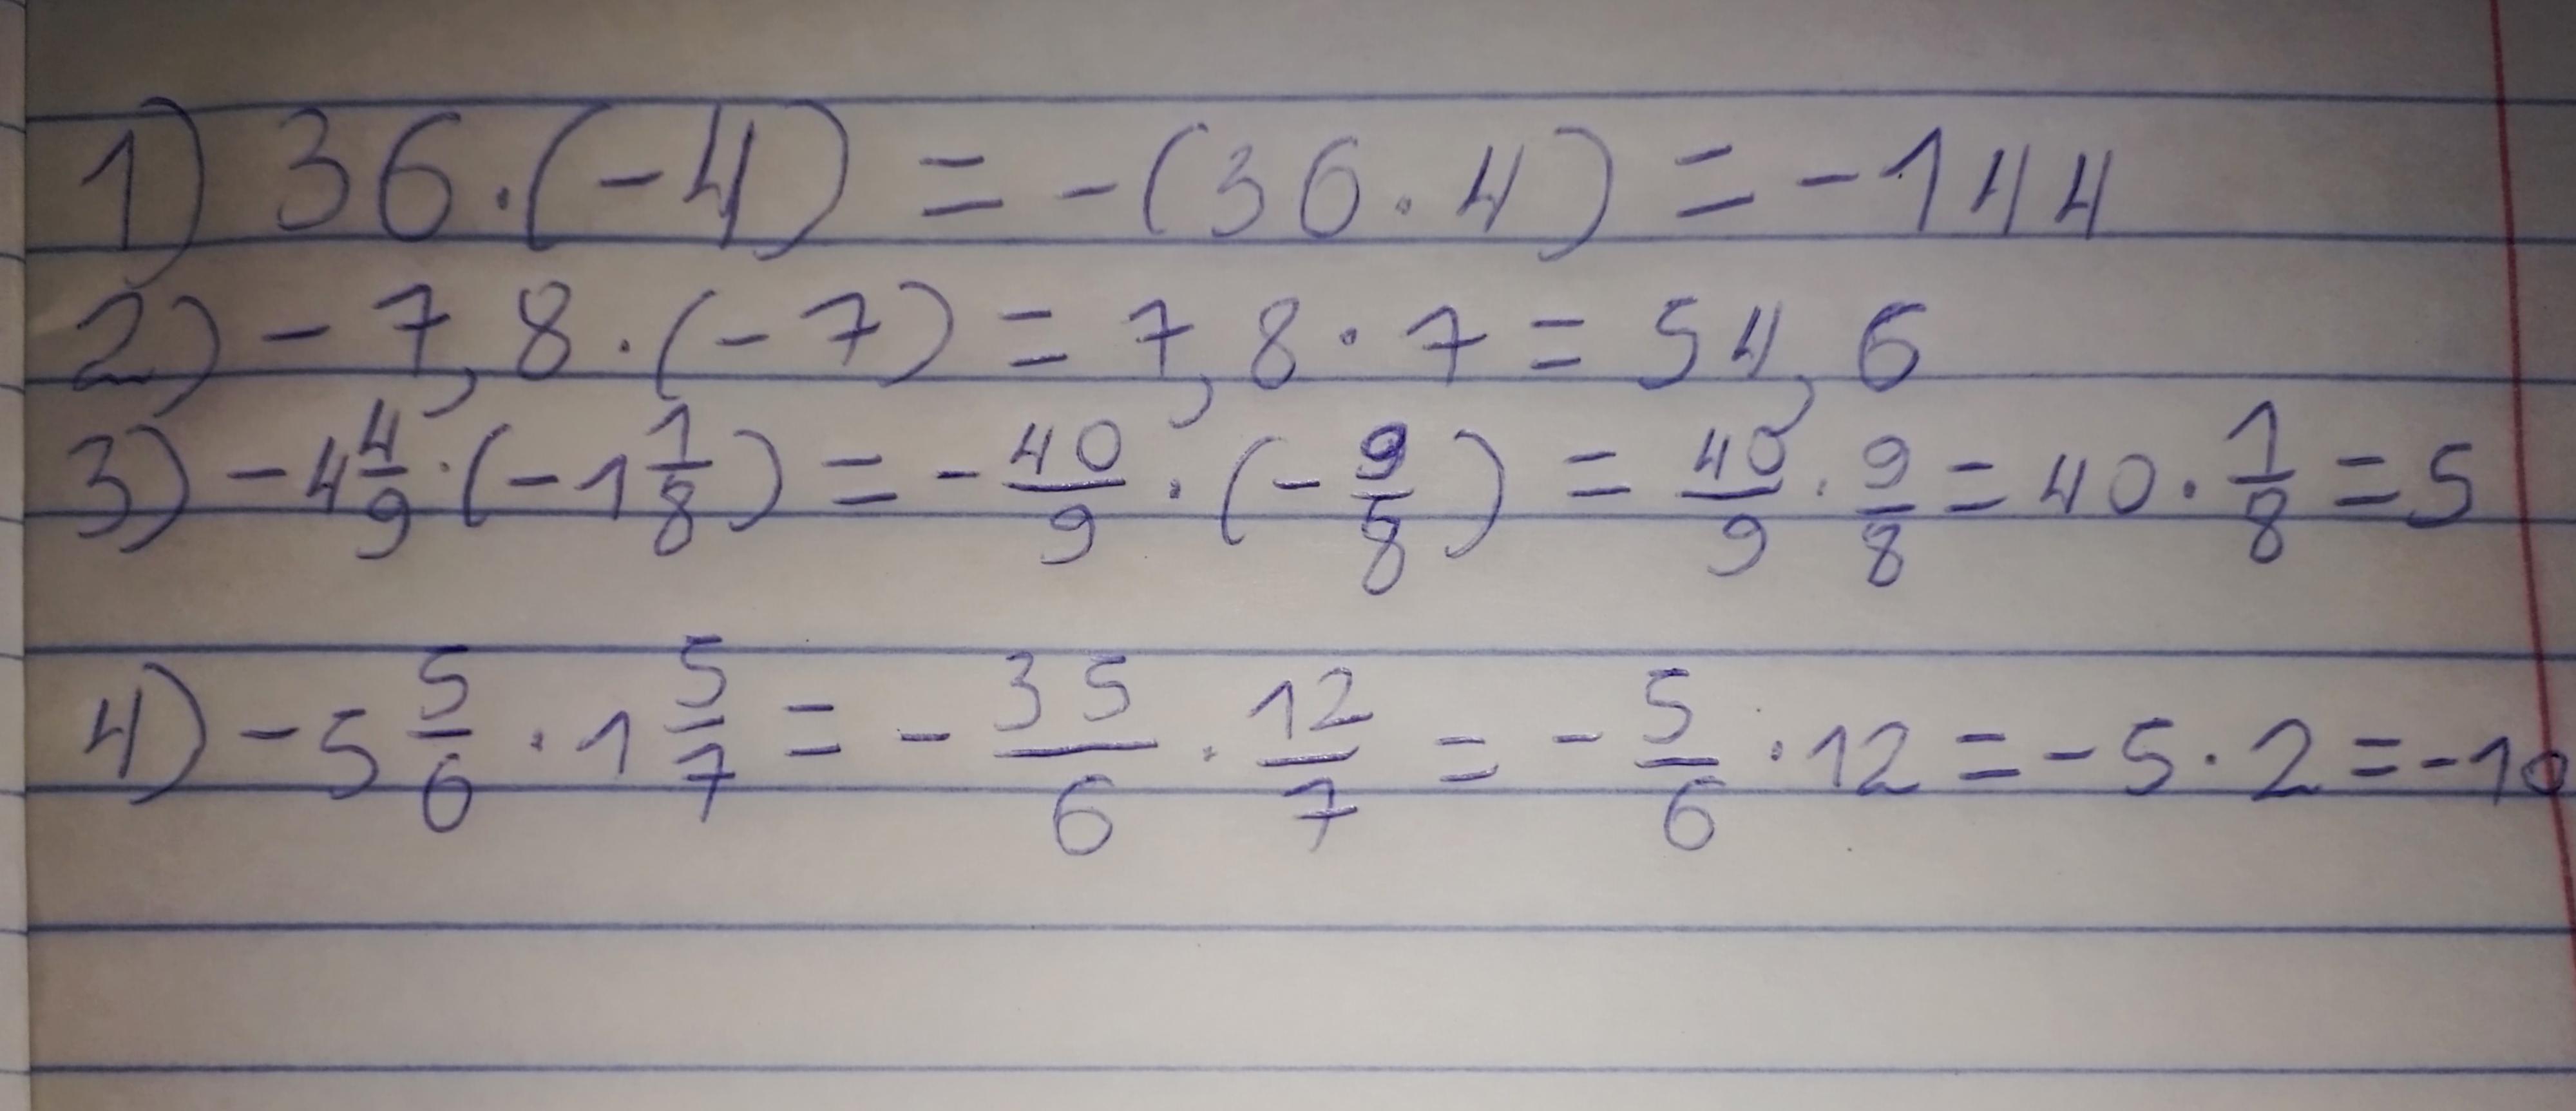 1) 36 · (-4) = -(36 · 4) = -144
2) -7,8 · (-7) = 7,8 · 7 = 54,6
3) -4 4/9 · (-1 1/8) = - 40/9 · (- 9/8) = 40/9 · 9/8 = 40 · 1/8 = 5
4) -5 5/6 · 1 5/7 = - 35/6 · 12/7 = - 5/6 · 12 = -5 · 2 = -10